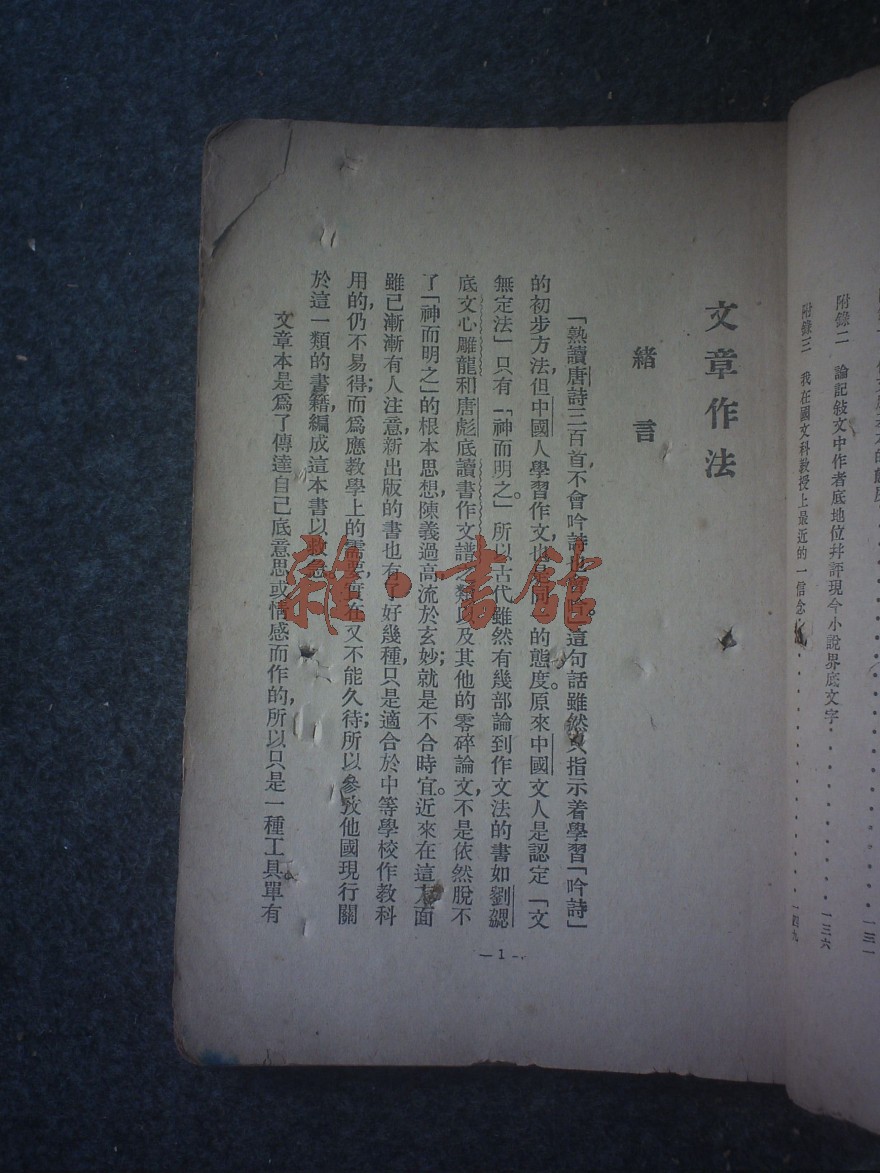 附錄二　論記敍文中作者底地位幷評現今小說界底文字・・・・・・一三六
附錄三　我在國文科敎授上最近的一信念・・・・・・一四九
文章作法
緒言
「熟讀唐詩三百首，不會吟詩也會吟。」這句話雖然只指示着學習「吟詩」
的初步方法，但中國人學習作文也是同一的態度。原來中國文人是認定「文
無定法」只有「神而明之。」所以古代雖然有幾部論到作文法的書如劉勰
底文心雕龍和唐彪底讀書作文譜之類以及其他的零碎論文，不是依然脫不
了「神而明之」的根本思想，陳義過高流於玄妙；就是不合時宜。近來在這方面
雖已漸漸有人注意，新出版的書也有了好幾種，只是適合於中等學校作敎科
用的仍不易得；而爲應敎學上的需要，實在又不能久待；所以參攷他國現行關
於這一類的書籍，編成這本書以救急。
文章本是爲了傳達自己底意思或情感而作的，所以只是一種工具。單有
—1—
雜·書館